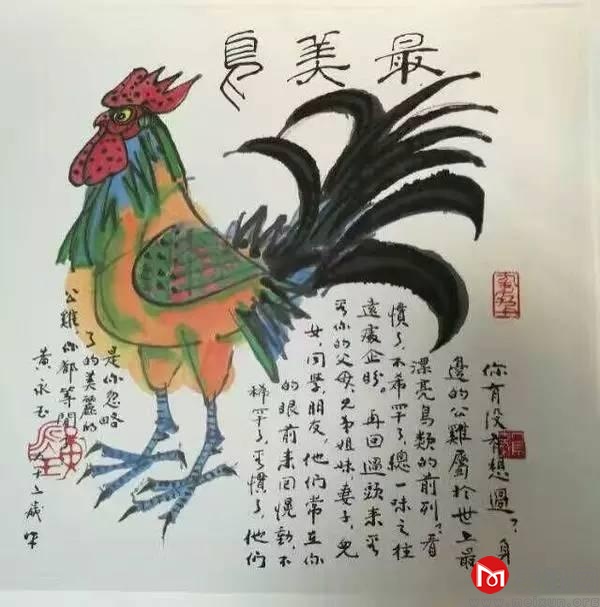 最美鳥
你有没有想過？身
邊的公雞屬於世上最
漂亮鳥類的前列？看
慣了，不希罕了，總一味之往
遠處企盼。再回過頭来看
看你的父母，兄弟姐妹，妻子，兒
女，同學，朋友，他們常在你
的眼前来回慌動，不
稀罕了，看慣了，他們
是你忽略
了的美麗的
公雞，你都等閒
黄永玉